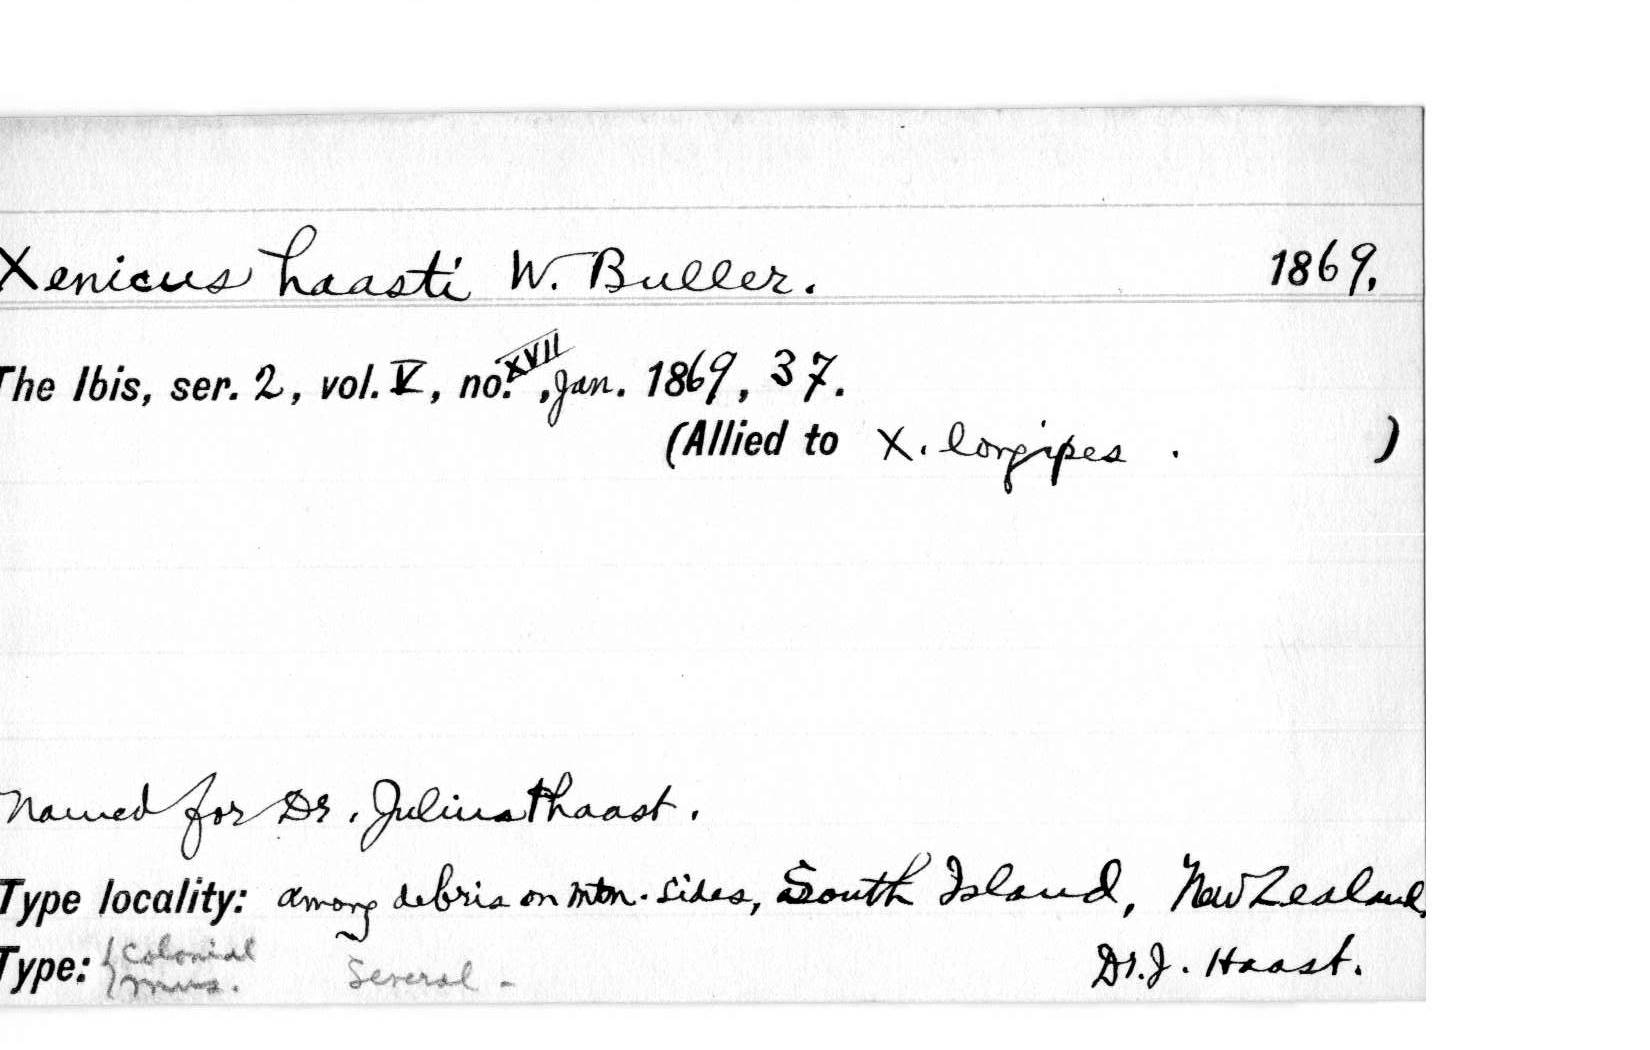 Xenicus haasti W. Buller. 1869.
The Ibis, ser. 2, vol. V, no. XVII, Jan. 1869, 37.
(Allied to X. longipes . )
Named for Dr. Julius Haast.
Type locality: among debris on mtn. sides, South Island, New Zealand.
Type: {Colonial Mus. Several - Dr. J. Haast.